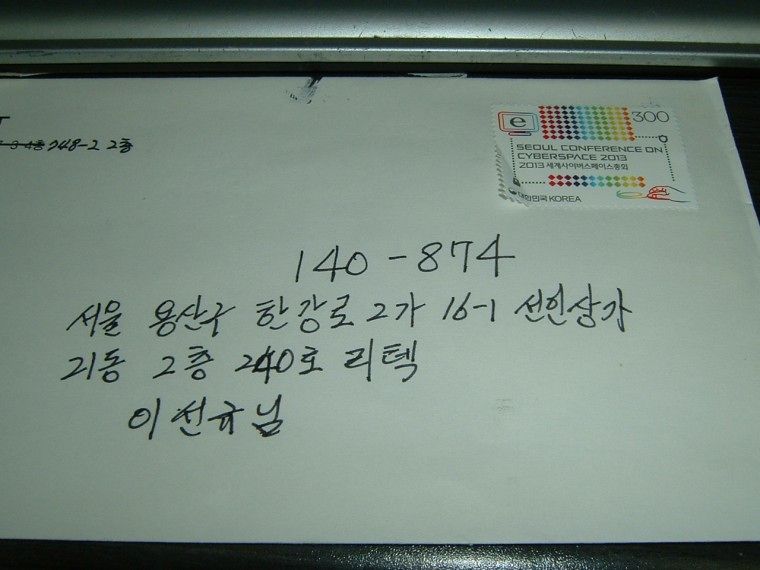 748-2 2층
e
300
SEOUL CONFERENCE ON
CYBERSPACE 2013
2013 세계사이버스페이스총회
대한민국 KOREA
140-874
서울 용산구 한강로2가 16-1 선인상가
21동 2층 240호 리텍
이선규님